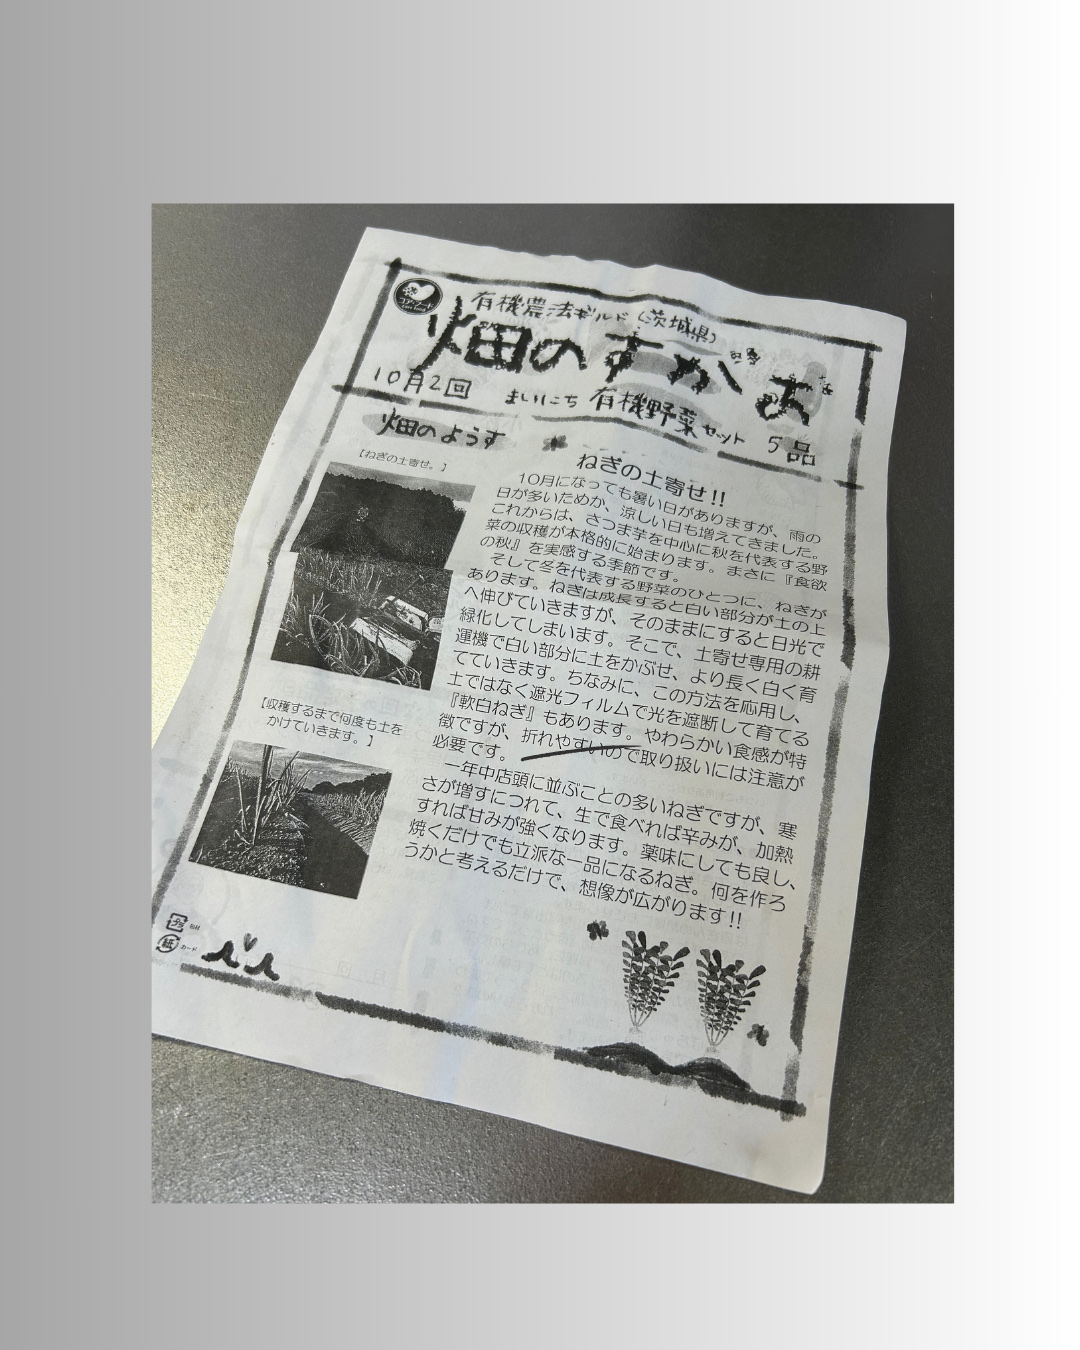 有機農法ギルド(茨城県)
畑のすがお
10月2回 まいにち 有機野菜セット 5品
畑のようす
【ねぎの土寄せ。】
【収穫するまで何度も土を
かけていきます。】
ねぎの土寄せ!!
10月になっても暑い日がありますが、雨の
日が多いためか、涼しい日も増えてきました。
これからは、さつま芋を中心に秋を代表する野
菜の収穫が本格的に始まります。まさに『食欲
の秋』を実感する季節です。
そして冬を代表する野菜のひとつに、ねぎが
あります。ねぎは成長すると白い部分が土の上
へ伸びていきますが、そのままにすると日光で
緑化してしまいます。そこで、土寄せ専用の耕
運機で白い部分に土をかぶせ、より長く白く育
てていきます。ちなみに、この方法を応用し、
土ではなく遮光フィルムで光を遮断して育てる
『軟白ねぎ』もあります。やわらかい食感が特
徴ですが、折れやすいので取り扱いには注意が
必要です。
一年中店頭に並ぶことの多いねぎですが、寒
さが増すにつれて、生で食べれば辛みが、加熱
すれば甘みが強くなります。薬味にしても良し、
焼くだけでも立派な一品になるねぎ。何を作ろ
うかと考えるだけで、想像が広がります!!
紙 カード